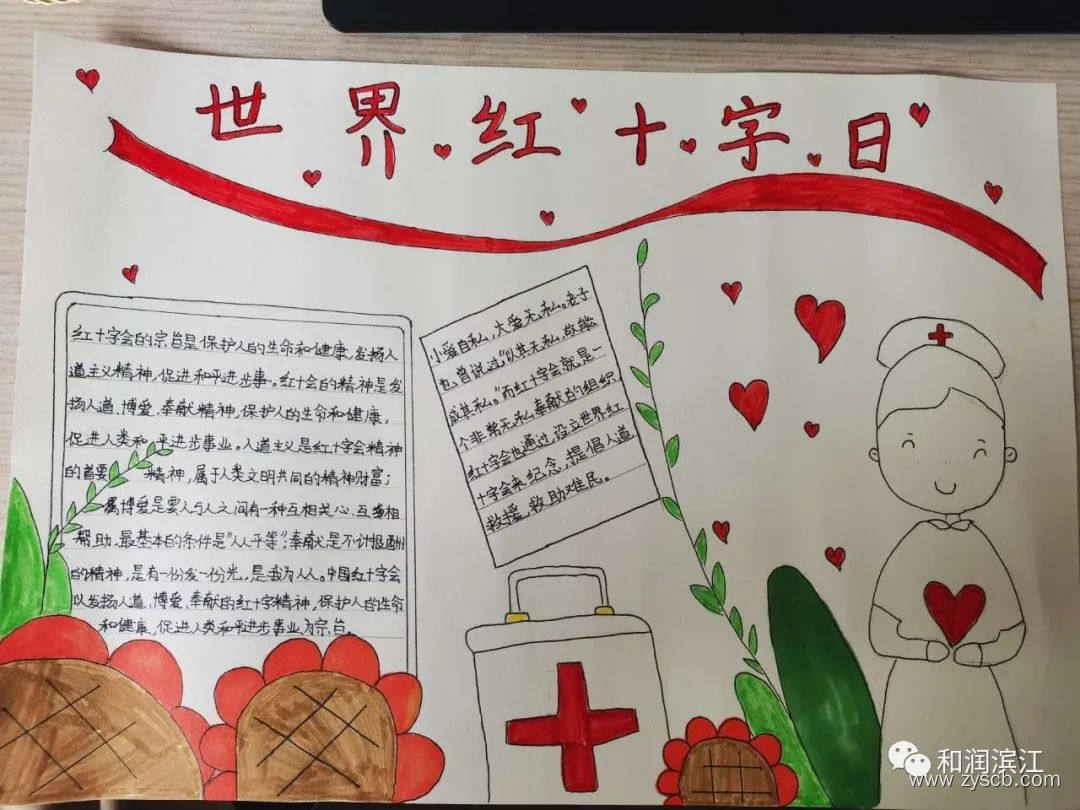 世界红十字日
红十字会的宗旨是保护人的生命和健康,发扬人
道主义精神,促进和平进步事。红十会的精神是发
扬人道、博爱、奉献精神,保护人的生命和健康,
促进人类和平进步事业。人道主义是红十字会精神
的首要 精神,属于人类文明共同的精神财富;
博爱是要人与人之间有一种互相关心、互相
帮助、最基本的条件是"人人平等";奉献是不计报酬
的精神,是有一份发一份光,是我为人人。中国红十字会
以发扬人道、博爱、奉献的红十字精神,保护人的生命
和健康,促进人类和平进步事业为宗旨。
小爱自私,大爱无私。老子
也曾说过"以其无私,故能
成其私。"而红十字会就是一
个非常无私奉献的组织,
红十字会也通过设立世界红
十字会来纪念,提倡人道
救援,救助难民。
和润滨江
www.zyscb.com